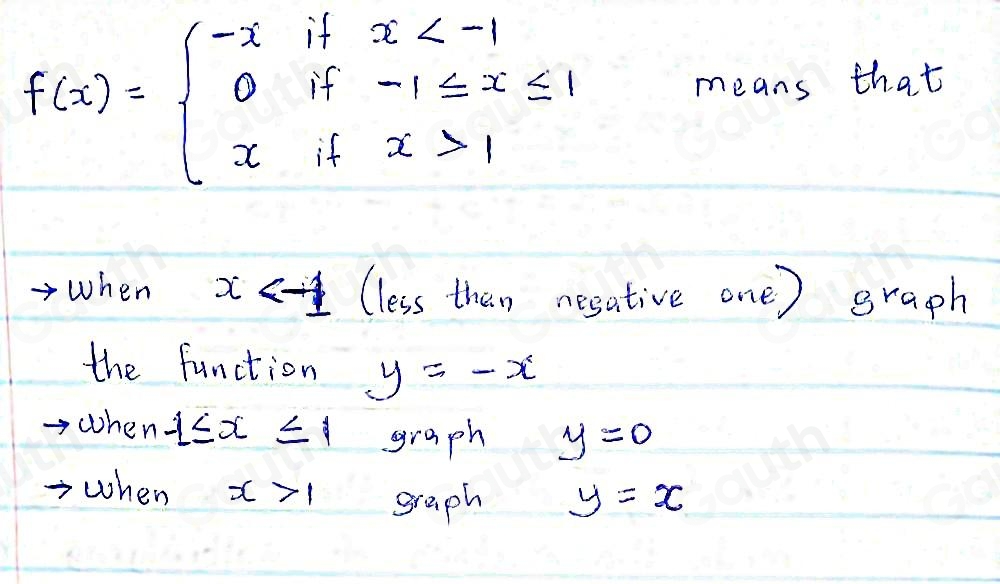 -x if x < -1
f(x) = 0 if -1 ≤ x ≤ 1 means that
x if x > 1
→ when x < -1 (less than negative one) graph
the function y = -x
→ when -1 ≤ x ≤ 1 graph y = 0
→ when x > 1 graph y = x